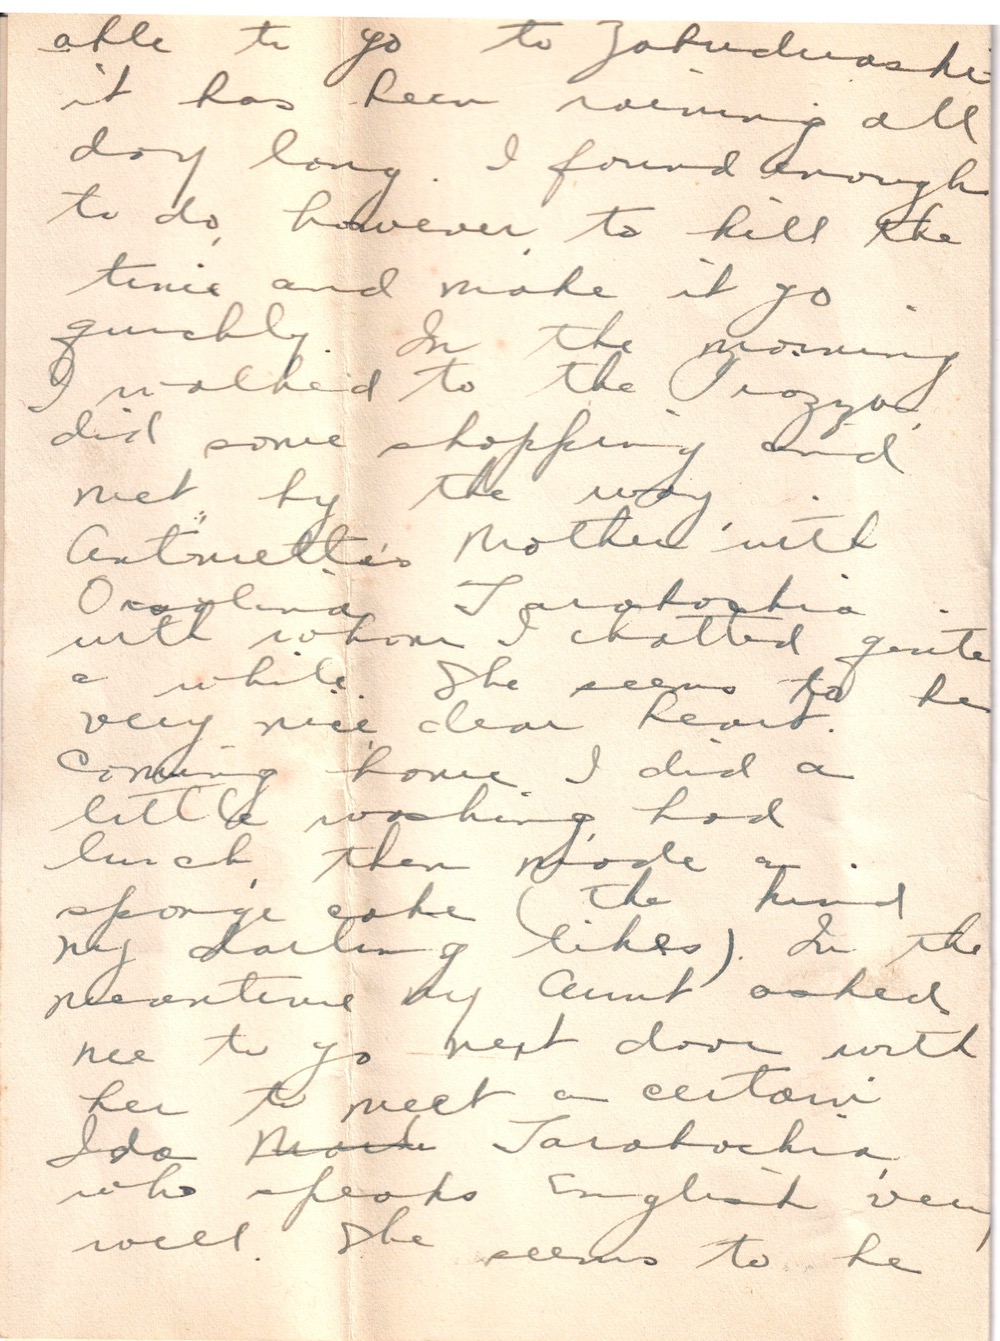 able to go to Zabudwashi
it has been raining all
day long. I found enough
to do, however, to kill the
time and make it go
quickly. In the morning
I walked to the Piazza,
did some shopping and
met by the way
Antonietta's Mother with
Orsolina Tarabochia
with whom I chatted quite
a while. She seems to be
very nice, dear heart.
Coming home I did a
little washing, had
lunch, then made a
sponge cake (the kind
my darling likes). In the
meantime my Aunt asked
me to go next door with
her to meet a certain
Ida Tarabochia,
who speaks English very
well. She seems to be